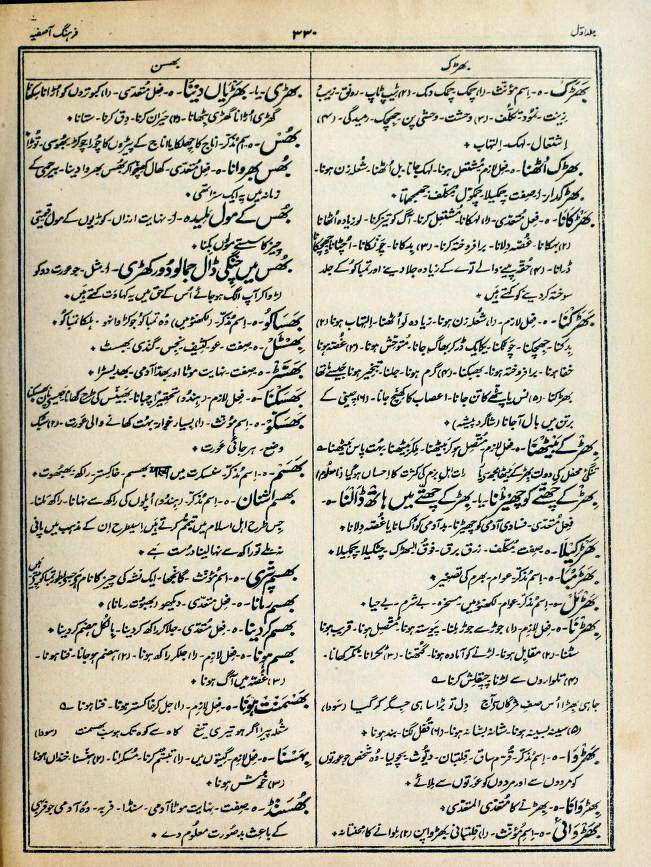 جلد اوّل
۳۳۰
فرہنگ آصفیہ
بھڑک
بھڑک - ہ - اسم مؤنث - (۱) چمک - چمک دمک - (۲) ٹیپ ٹاپ - رونق - زیب
زینت - نمود - تکلّف - (۳) وحشت - وحشی پن - جھجک - رمیدگی - (۴)
اشتعال - لہک - التہاب *
بھڑک اٹھنا - ہ - فعل لازم - مشتعل ہونا - لہک جانا - بل اٹھنا - شعلہ زن ہونا *
بھڑکدار - ا - صفت - چمکیلا -
بھڑکانا - ہ - فعل متعدی - (۱) لہکانا - مشتعل کرنا - آگ کو تیز کرنا - لو زیادہ اٹھانا
(۲) بہکانا - غصّہ دلانا - برافروختہ کرنا - (۳) بدکانا - چونکانا -
ڈرانا - (۴) حقّہ پینے والے توے کے زیادہ جلا دینے اور تمباکو کے جلد
سوختہ کر دینے کو کہتے ہیں *
بھڑکنا - ہ - فعل لازم - (۱) شعلہ زن ہونا - زیادہ لو اٹھنا - التہاب ہونا (۲)
بدکنا - جھجکنا - چونکنا - یکایک ڈر کر بھاگ جانا - متوحش ہونا - (۳) غصّہ ہونا
خفا ہونا - برافروختہ ہونا - بھبکنا - (۴) گرم ہونا - جلنا -
بھڑکنا - (۵) نس یا پٹھے کا تن جانا - اعصاب کا کھنچ جانا - (۶) چینی کے
برتن میں بال آ جانا (شاگرد پیشہ) *
بھڑ کے بیٹھنا - ہ - فعل لازم - متصل ہو کر بیٹھنا - مل کر بیٹھنا - بہت پاس بیٹھنا ے
بھڑ کے چھتے کو چھیڑنا - یا - بھڑ کے چھتے میں ہاتھ ڈالنا - ہ -
فعل متعدی - فسادی آدمی کو چھیڑنا - بدآدمی کو اکسانا یا غصّہ دلانا *
بھڑکیلا - ہ - صفت - متکلّف - زرق برق - فوق البھڑک - چمکیلا *
بھڑمبا - ہ - اسم مذکر - عوام - بھرم کی تصغیر *
بھڑمل - ہ - اسم مذکر - عوام لکھنؤ میں - مسخرہ - بے شرم - بے حیا *
بھڑنا - ہ - فعل لازم - (۱) جوڑے جوڑ ملنا - پیوستہ ہونا - متصل ہونا - قریب ہونا
سٹنا - (۲) مقابل ہونا - لڑنے کو آمادہ ہونا - گتھنا - (۳) ٹکرانا - ٹکر کھانا -
(۴) تلواروں سے لڑنا - چپقلش کرنا ے
جا ہی بھڑا اُس صف مژگاں آج دل تو بڑا سا ہی جگر کر گیا (سودا)
(۵) سینہ بسینہ ہونا - شانہ بشانہ ہونا - (۶) قفل لگنا - بند ہونا *
بھڑوا - ہ - اسم مذکر - قرم ساق - قلتبان - دیّوث - بچولیا - وہ شخص جو عورتوں
کو مردوں سے اور مردوں کو عورتوں سے ملائے *
بھڑوانا - ہ - بھڑنے کا متعدی المتعدی *
بھڑوائی - ہ - اسم مؤنث - (۱) قلتبانی - بھڑوا پن - (۲) ملوانے کا محنتانہ *
بھسن
بھڑی - یا - بھڑیاں دینا - ہ - فعل متعدی - (۱) کبوتروں کو اڑانا سکھانا
گھڑی اڑانا گھڑی بٹھانا - (۲) حیران کرنا - دق کرنا - ستانا *
بھس - ہ - اسم مذکر - اناج کا چھلکا یا اناج کے پیڑوں کا چورا - چوکر - بھوسی - توڑا
بھس بھروانا - ہ - فعل متعدی - کھال کھنچوا کر بھس بھروا دینا - بے رحمی کے
زمانہ میں یہ ایک سزا تھی *
بھس کے مول ملیدہ - ا - نہایت ارزاں - کوڑیوں کے مول قیمتی
چیز کا سستے مولوں بکنا *
بھس میں چنگی ڈال جمالو دور کھڑی - ا - مثل - جو عورت دو کو
لڑوا کر آپ الگ ہو جائے اُس کے حق میں یہ کہاوت کہتے ہیں *
بھساکو - ہ - اسم مذکر - (لکھنؤ میں) وہ تمباکو جو کڑوا نہو - ہلکا تمباکو *
بھشٹل - ہ - صفت - عو - کثیف - نجس - گندی - بھرسٹ *
بھسٹر - ہ - صفت - نہایت موٹا اور بھدّا آدمی -
بھسکنا - ہ - فعل لازم - (ہندو) تحقیراً چبانا - بھینس کی طرح کھانا -
بھسکو - ہ - اسم مؤنث - (۱) بسیار خوار - بہت کھانے والی عورت - (۲)
وضع - ہرجائی عورت *
بھسم - ہ - اسم مذکر - سنسکرت میں भस्म بھسم - خاکستر - راکھ - بھبھوت *
بھسم اشنان - ہ - اسم مذکر - (ہندو) اُپلوں کی راکھ سے نہانا - راکھ ملنا -
جس طرح اہل اسلام میں تیمّم کرتے ہیں اسیطرح اِن کے مذہب میں پانی
نہ ملے تو راکھ سے نہا لینا درست ہے *
بھسم پتری - ہ - اسم مؤنث - گانجھا - ایک نشہ کی چیز کا نام ہے
بھسم رمانا - ہ - فعل متعدی - دیکھو (بھبوت رمانا) *
بھسم کر دینا - ہ - فعل متعدی - جلا کر راکھ کر دینا - بالکل ہضم کر دینا *
بھسم ہونا - ہ - فعل لازم - (۱) جلکر راکھ ہونا - (۲) ہضم ہو جانا - فنا ہونا *
(۳) غصّہ میں آگ ہونا *
بھسمنت ہونا - ہ - فعل لازم - (۱) جل کر خاکستر ہونا - فنا ہونا ے
شعلہ پیرا گر ہو تیری تیغ کاہ سے کوہ تک ہو سب بھسمنت (سودا)
بھسنا - ہ - فعل لازم - گیتوں میں - (۱) تبسّم کرنا - مسکرانا - (۲) ہنسنا - خنداں ہونا
(۳) خوش ہونا *
بھسنڈ - ہ - صفت - نہایت موٹا آدمی - سنڈا - فربہ - وہ آدمی جو فربہی
کے باعث بدصورت معلوم دے *